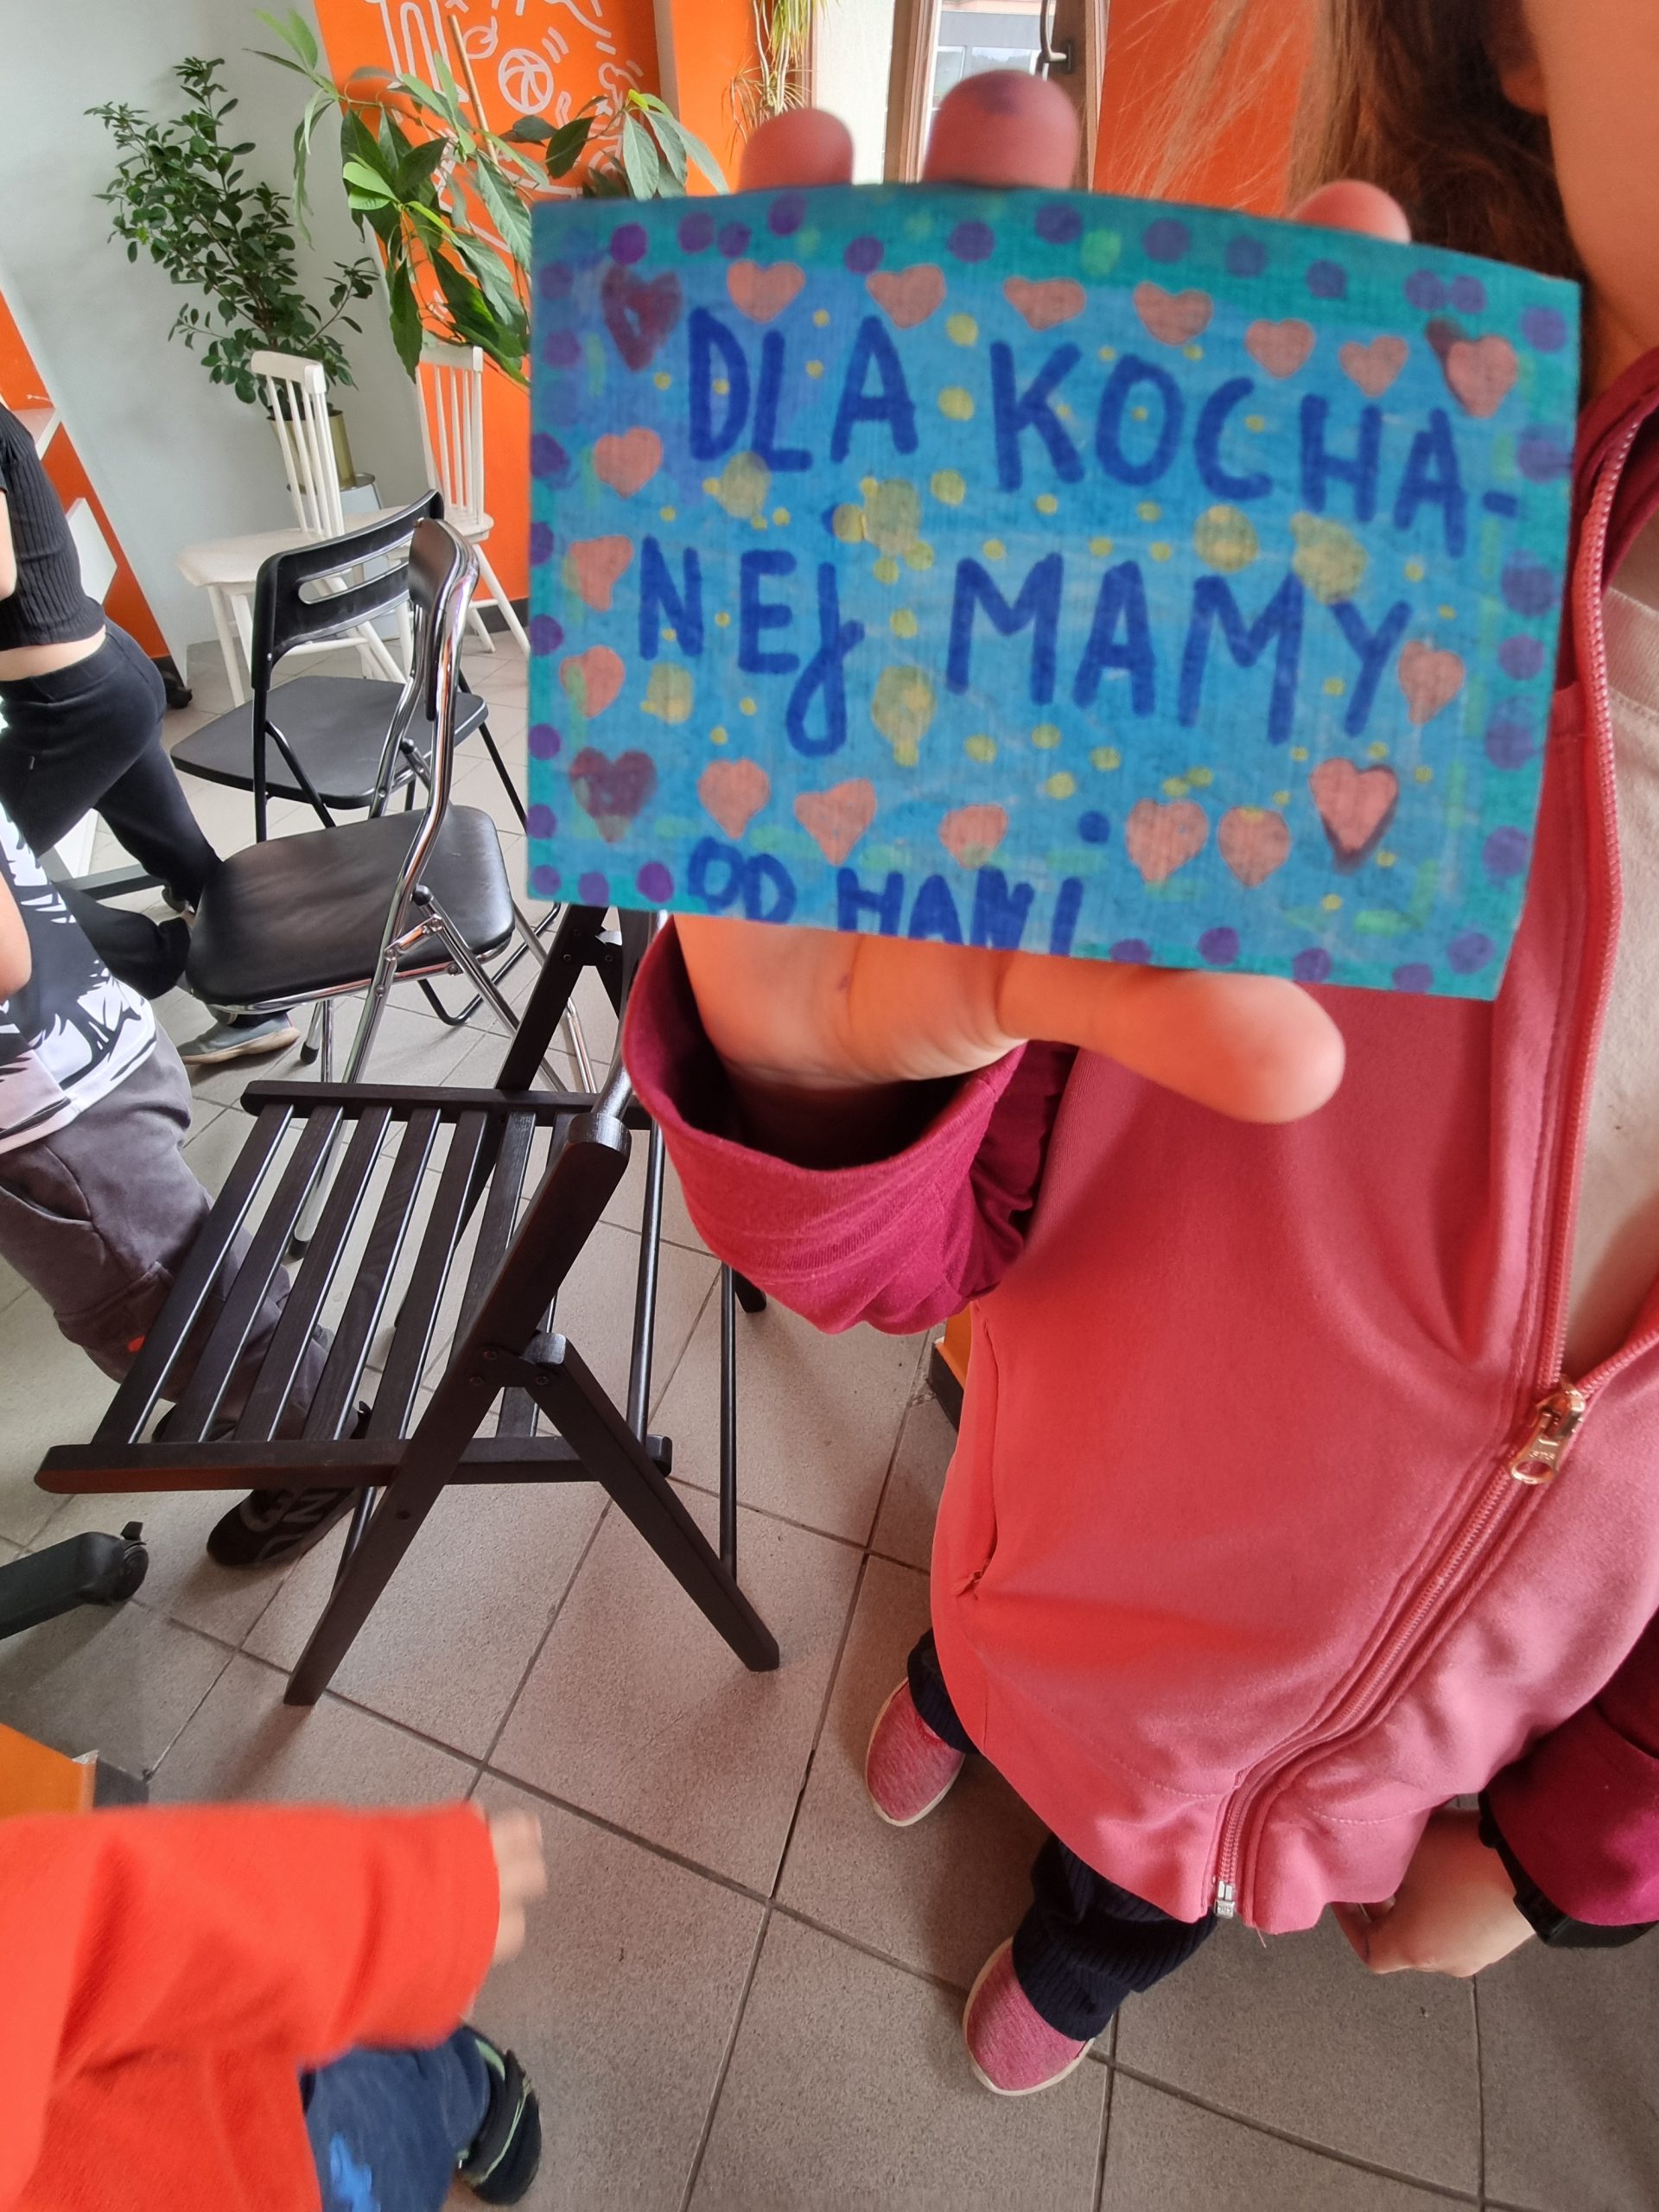 DLA KOCHA-
NEJ MAMY
OD HANI